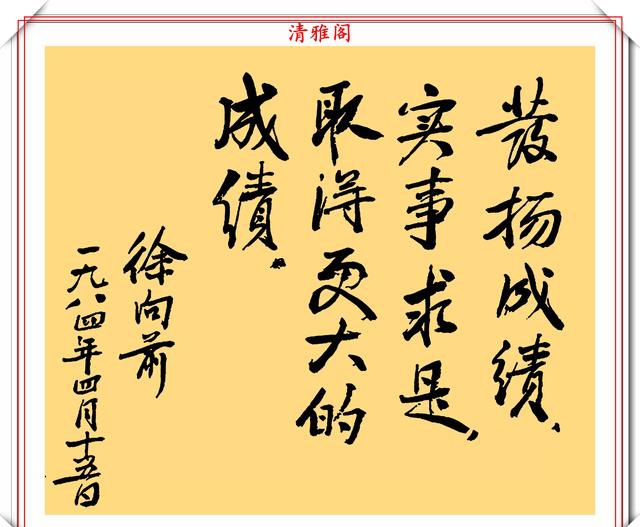 清雅阁
發扬成绩、
实事求是，
取得更大的
成绩.
徐向前
一九八四年四月十五日